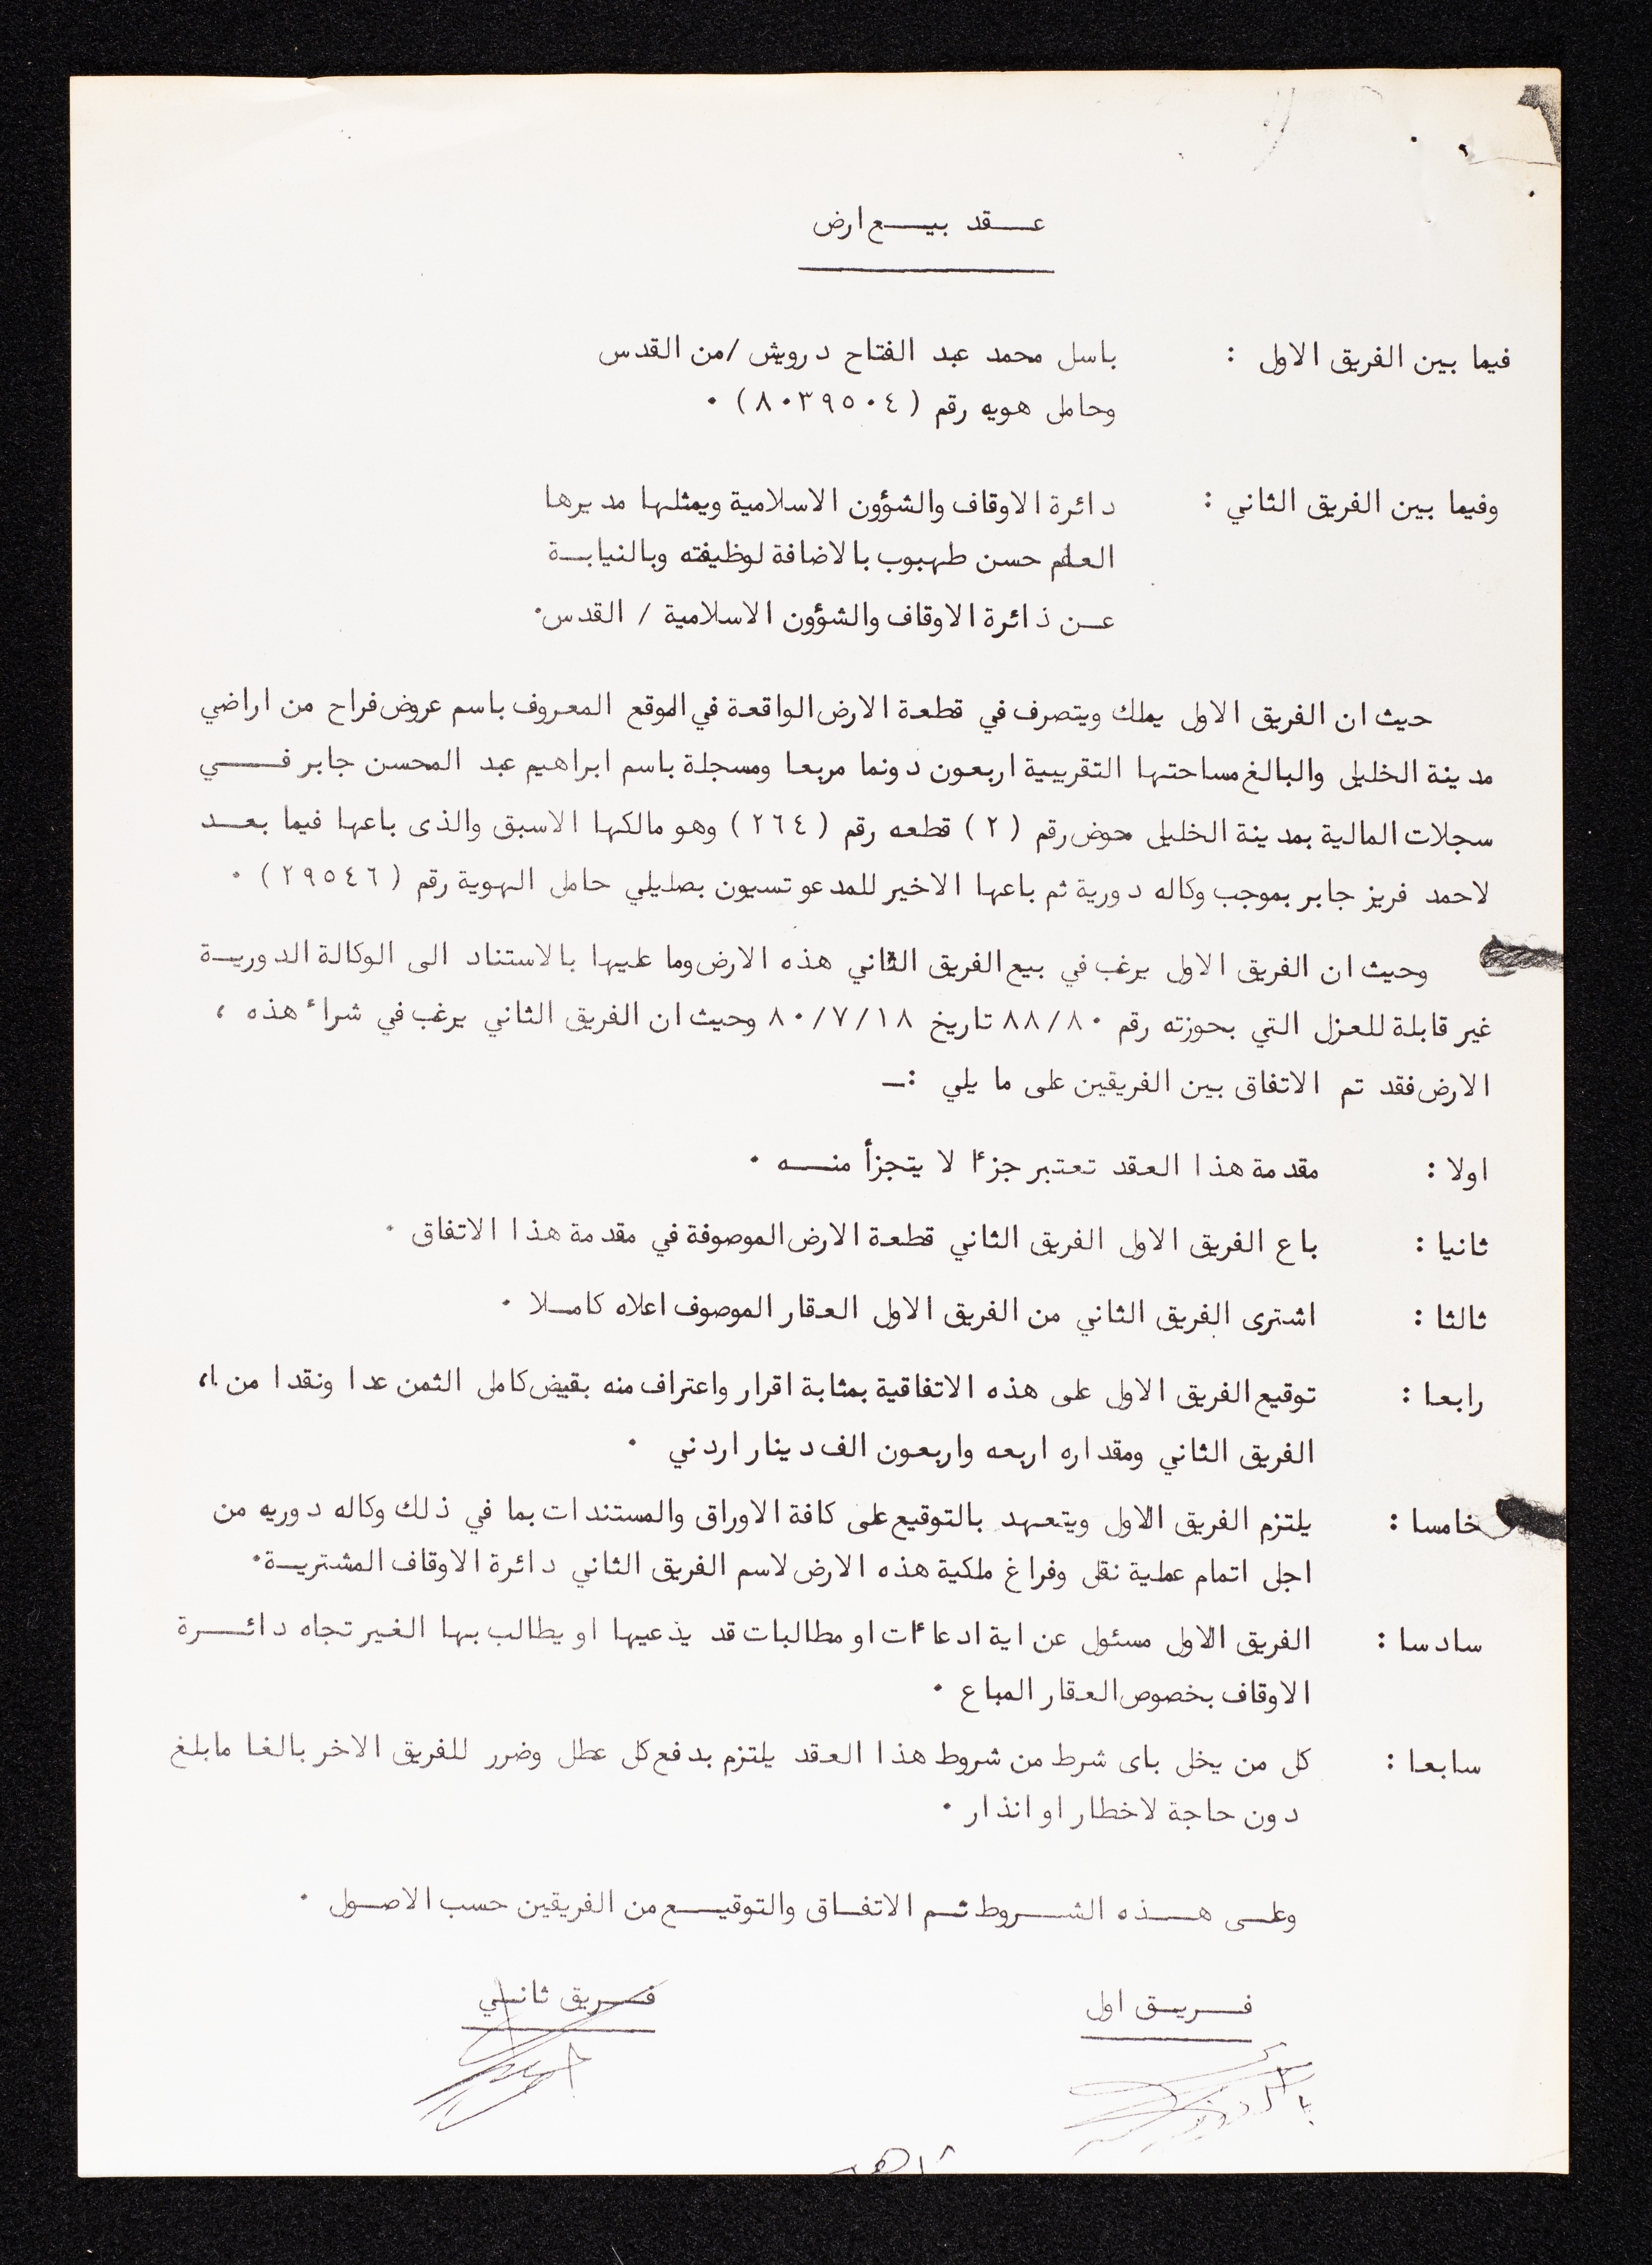 عـقد بيـع ارض
فيما بين الفريق الاول : باسل محمد عبد الفتاح درويش /من القدس
وحامل هويه رقم (٨٠٣٩٥٠٤) ٠
وفيما بين الفريق الثاني : دائرة الاوقاف والشؤون الاسلامية ويمثلها مديرها
العام حسن طهبوب بالاضافة لوظيفته وبالنيابـة
عـن ذائرة الاوقاف والشؤون الاسلامية / القدس٠
حيث ان الفريق الاول يملك ويتصرف في قطعة الارض الواقعة في الموقع المعروف باسم عروض فراح من اراضي
مدينة الخليل والبالغ مساحتها التقريبية اربعون دونما مربعا ومسجلة باسم ابراهيم عبد المحسن جابر فـــي
سجلات المالية بمدينة الخليل حوض رقم (٢) قطعه رقم (٢٦٤) وهو مالكها الاسبق والذى باعها فيما بعـد
لاحمد فريز جابر بموجب وكاله دورية ثم باعها الاخير للمدعو تسيون بصليلي حامل الهوية رقم (٢٩٥٤٦) ٠
وحيث ان الفريق الاول يرغب في بيع الفريق الثاني هذه الارض وما عليها بالاستناد الى الوكالة الدوريـة
غير قابلة للعزل التي بحوزته رقم ٨٨/٨٠ تاريخ ٨٠/٧/١٨ وحيث ان الفريق الثاني يرغب في شراء هذه ،
الارض فقد تم الاتفاق بين الفريقين على ما يلي :ـ
اولا : مقدمة هذا العقد تعتبر جزءا لا يتجزأ منـــه ٠
ثانيا : باع الفريق الاول الفريق الثاني قطعة الارض الموصوفة في مقدمة هذا الاتفاق ٠
ثالثا : اشترى الفريق الثاني من الفريق الاول العقار الموصوف اعلاه كامـلا ٠
رابعا : توقيع الفريق الاول على هذه الاتفاقية بمثابة اقرار واعتراف منه بقبض كامل الثمن عدا ونقدا من
الفريق الثاني ومقداره اربعه واربعون الف دينار اردني ٠
خامسا : يلتزم الفريق الاول ويتعهد بالتوقيع على كافة الاوراق والمستندات بما في ذلك وكاله دوريه من
اجل اتمام عملية نقل وفراغ ملكية هذه الارض لاسم الفريق الثاني دائرة الاوقاف المشتريـة٠
سادسا : الفريق الاول مسئول عن اية ادعاءات او مطالبات قد يذعيها او يطالب بها الغير تجاه دائــرة
الاوقاف بخصوص العقار المباع ٠
سابعا : كل من يخل باى شرط من شروط هذا العقد يلتزم بدفع كل عطل وضرر للفريق الاخر بالغا مابلغ
دون حاجة لاخطار او انذار ٠
وعلـى هـــذه الشـــروط تـم الاتفـاق والتوقيــع من الفريقين حسب الاصـول ٠
فـــريـق اول
فـــريق ثانـي